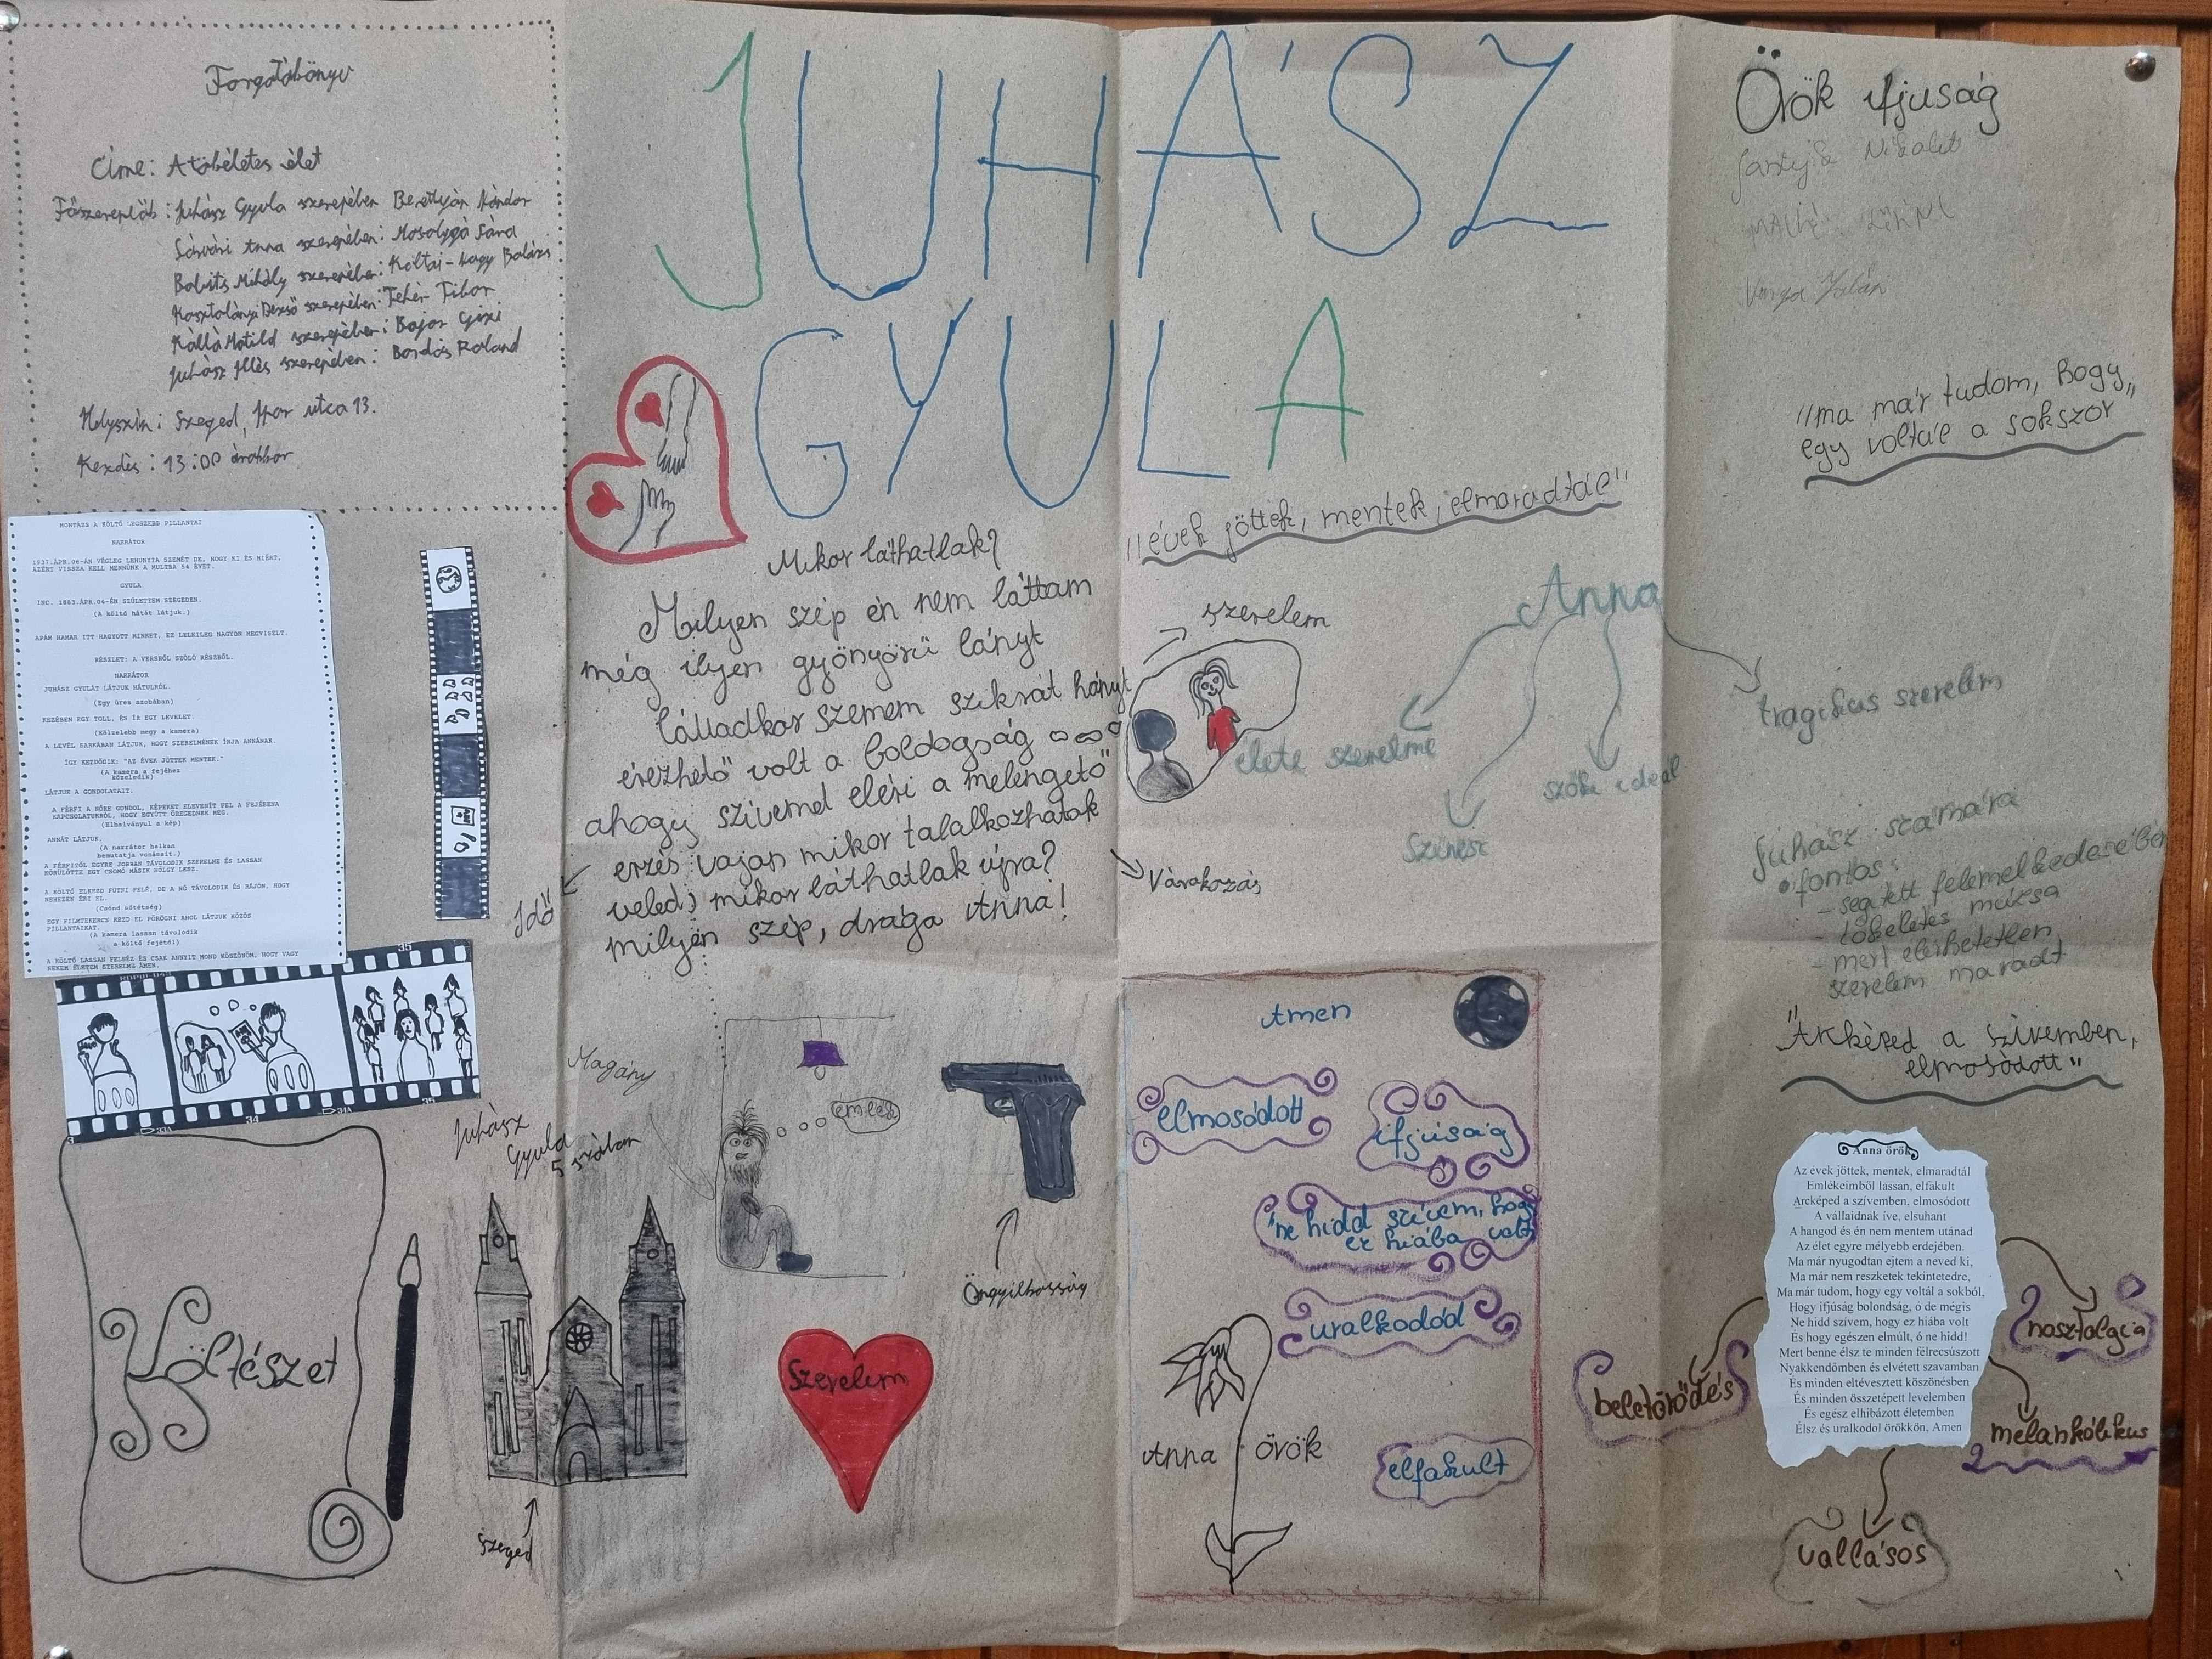 Forgatókönyv
Címe: A töbéletes élet
Főszereplők: Juhász Gyula szerepében Berettyán Nándor
Sárvári Anna szerepében: Mosolygó Sára
Babits Mihály szerepében: Koltai-Nagy Balázs
Kosztolányi Dezső szerepében: Fehér Tibor
Kálló Matild szerepében: Bajor Gizi
Juhász Illés szerepében: Bordás Roland
Helyszín: Szeged, Ipar utca 13.
Kezdés: 13:00 órakor
MONTÁZS A KÖLTŐ LEGSZEBB PILLANTAI
NARRÁTOR
1937.ÁPR.06-ÁN VÉGLEG LEHUNYTA SZEMÉT DE, HOGY KI ÉS MIÉRT,
AZÉRT VISSZA KELL MENNÜNK A MULTBA 54 ÉVET.
GYULA
INC. 1883.ÁPR.04-ÉN SZÜLETTEM SZEGEDEN.
(A költő hátát látjuk.)
APÁM HAMAR ITT HAGYOTT MINKET, EZ LELKILEG NAGYON MEGVISELT.
RÉSZLET: A VERSRŐL SZÓLÓ RÉSZBŐL.
NARRÁTOR
JUHÁSZ GYULÁT LÁTJUK HÁTULRÓL.
(Egy üres szobában)
KEZÉBEN EGY TOLL, ÉS ÍR EGY LEVELET.
(Közelebb megy a kamera)
A LEVÉL SARKÁBAN LÁTJUK, HOGY SZERELMÉNEK ÍRJA ANNÁNAK.
ÍGY KEZDŐDIK: "AZ ÉVEK JÖTTEK MENTEK."
(A kamera a fejéhez
közeledik)
LÁTJUK A GONDOLATAIT.
A FÉRFI A NŐRE GUNDOL, KÉPEKET ELEVENÍT FEL A FEJÉBENA
KAPCSOLATUKRÓL, HOGY EGYÜTT ÖREGEDNEK MEG.
(Elhalványul a kép)
ANNÁT LÁTJUK.
(A narrátor halkan
bemutatja vonásait.)
A FÉRFITŐL EGYRE JOBBAN TÁVOLODIK SZERELME ÉS LASSAN
KÖRÜLÖTTE EGY CSOMÓ MÁSIK HÖLGY LESZ.
A KÖLTŐ ELKEZD FUTNI FELÉ, DE A NŐ TÁVOLODIK ÉS RÁJÖN, HOGY
NEHEZEN ÉRI EL.
(Csönd sötétség)
EGY FILMTEKERCS KEZD EL PÖRÖGNI AHOL LÁTJUK KÖZÖS
PILLANTAIKAT.
(A kamera lassan távolodik
a költő fejétől)
A KÖLTŐ LASSAN FELNÉZ ÉS CSAK ANNYIT MOND KÖSZÖNÖM, HOGY VAGY
NEKEM ÉLETEM SZERELME ÁMEN.
35
34
34A
35
Költészet
JUHÁSZ
GYULA
Mikor láthatlak?
Milyen szép én nem láttam
még ilyen gyönyörű lányt
látladkor szemem szikrát hányt
érezhető volt a boldogság
ahogy szívemet eléri a melengető
érzés vajon mikor talalkozhatok
veled, mikor láthatlak újra?
milyen szép, drága Anna!
Idő
szerelem
Várakozás
Juhász
Gyula
5 szóban
Magány
emlék
Öngyilkosság
Szerelem
Szeged
"évek jöttek, mentek, elmaradtál"
Anna
élete szerelme
Színész
szőke ideál
tragikus szerelem
Ámen
elmosódott
ifjúság
"ne hidd szívem, hogy
ez hiába volt
uralkodód
Anna örök
elfakult
Örök ifjuság
Varga Zolán
"ma már tudom, hogy
egy voltál a sokszor"
Juhász számára
fontos:
- segített felemelkedésében
- tökéletes múzsa
- mert elérhetetlen
szerelem maradt
"Arcképed a szívemben,
elmosódott"
Anna örök
Az évek jöttek, mentek, elmaradtál
Emlékeimből lassan, elfakult
Arcképed a szívemben, elmosódott
A vállaidnak íve, elsuhant
A hangod és én nem mentem utánad
Az élet egyre mélyebb erdejében.
Ma már nyugodtan ejtem a neved ki,
Ma már nem reszketek tekintetedre,
Ma már tudom, hogy egy voltál a sokból,
Hogy ifjúság bolondság, ó de mégis
Ne hidd szívem, hogy ez hiába volt
És hogy egészen elmúlt, ó ne hidd!
Mert benne élsz te minden félrecsúszott
Nyakkendőmben és elvétett szavamban
És minden eltévesztett köszönésben
És minden összetépett levelemben
És egész elhibázott életemben
Élsz és uralkodol örökkön, Amen
nosztalgia
beletörődés
melankólikus
vallásos